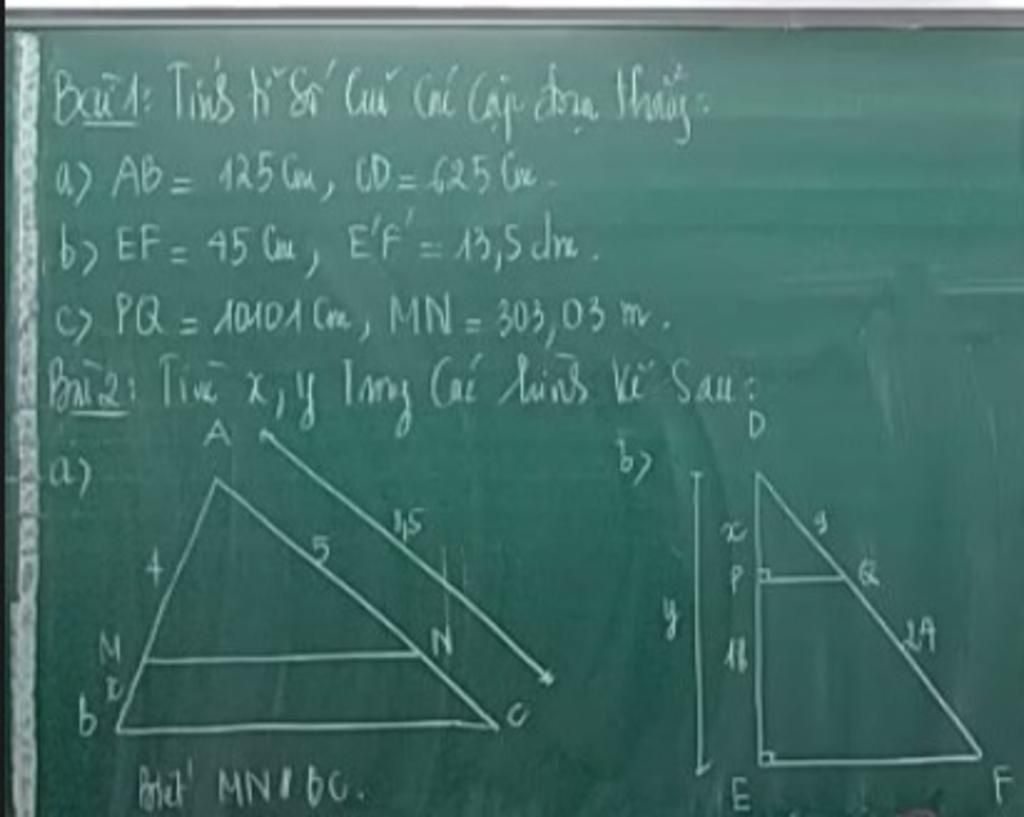 Bài 1: Tính tỉ số của các cặp đoạn thẳng:
a) AB = 125 cm, CD = 625 cm.
b) EF = 45 cm, E'F' = 13,5 dm.
c) PQ = 10101 cm, MN = 303,03 m.
Bài 2: Tìm x, y trong các hình vẽ sau:
a)
A
4
5
8,5
M
N
x
B
C
Biết MN // BC.
b)
D
x
9
P
Q
y
18
24
E
F